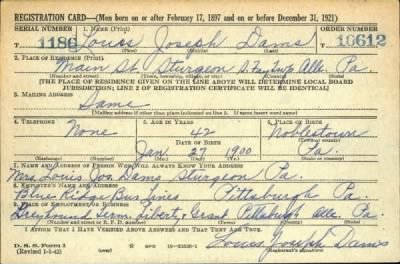 REGISTRATION CARD—(Men born on or after February 17, 1897 and on or before December 31, 1921)
SERIAL NUMBER 1. NAME (Print) ORDER NUMBER
T 1186 Louis Joseph Dams T 10612
(First) (Middle) (Last)
2. PLACE OF RESIDENCE (Print)
Main St. Sturgeon S. Fay. Twp. Alle. Pa.
(Number and street) (Town, township, village, or city) (County) (State)
[THE PLACE OF RESIDENCE GIVEN ON THE LINE ABOVE WILL DETERMINE LOCAL BOARD
JURISDICTION; LINE 2 OF REGISTRATION CERTIFICATE WILL BE IDENTICAL]
3. MAILING ADDRESS
Same
[Mailing address if other than place indicated on line 2. If same insert word same]
4. TELEPHONE 5. AGE IN YEARS 6. PLACE OF BIRTH
None 42 Noblestown
DATE OF BIRTH (Town or county)
Jan. 27 1900 Pa.
(Exchange) (Number) (Mo.) (Day) (Yr.) (State or country)
7. NAME AND ADDRESS OF PERSON WHO WILL ALWAYS KNOW YOUR ADDRESS
Mrs. Louis Jos. Dams Sturgeon Pa.
8. EMPLOYER'S NAME AND ADDRESS
Blue Ridge Bus Lines Pittsburgh Pa.
9. PLACE OF EMPLOYMENT OR BUSINESS
Greyhound Term. Liberty, Grant Pittsburgh Alle. Pa.
(Number and street or R. F. D. number) (Town) (County) (State)
I AFFIRM THAT I HAVE VERIFIED ABOVE ANSWERS AND THAT THEY ARE TRUE.
D. S. S. Form 1
(Revised 1-1-42) (over) Louis Joseph Dams
(Registrant's signature)